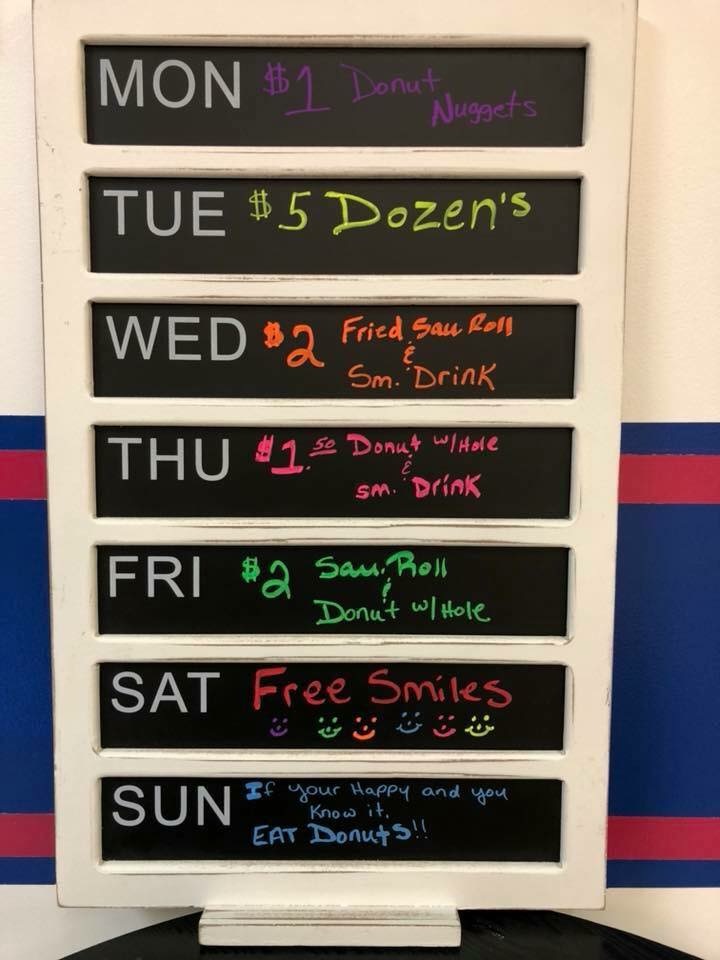 MON $1 Donut
Nuggets
TUE $5 Dozen's
WED $2 Fried Sau Roll
&
Sm. Drink
THU $1.50 Donut w/Hole
&
sm. Drink
FRI $2 Sau. Roll
&
Donut w/Hole
SAT Free Smiles
SUN If your Happy and you
Know it,
EAT Donuts!!